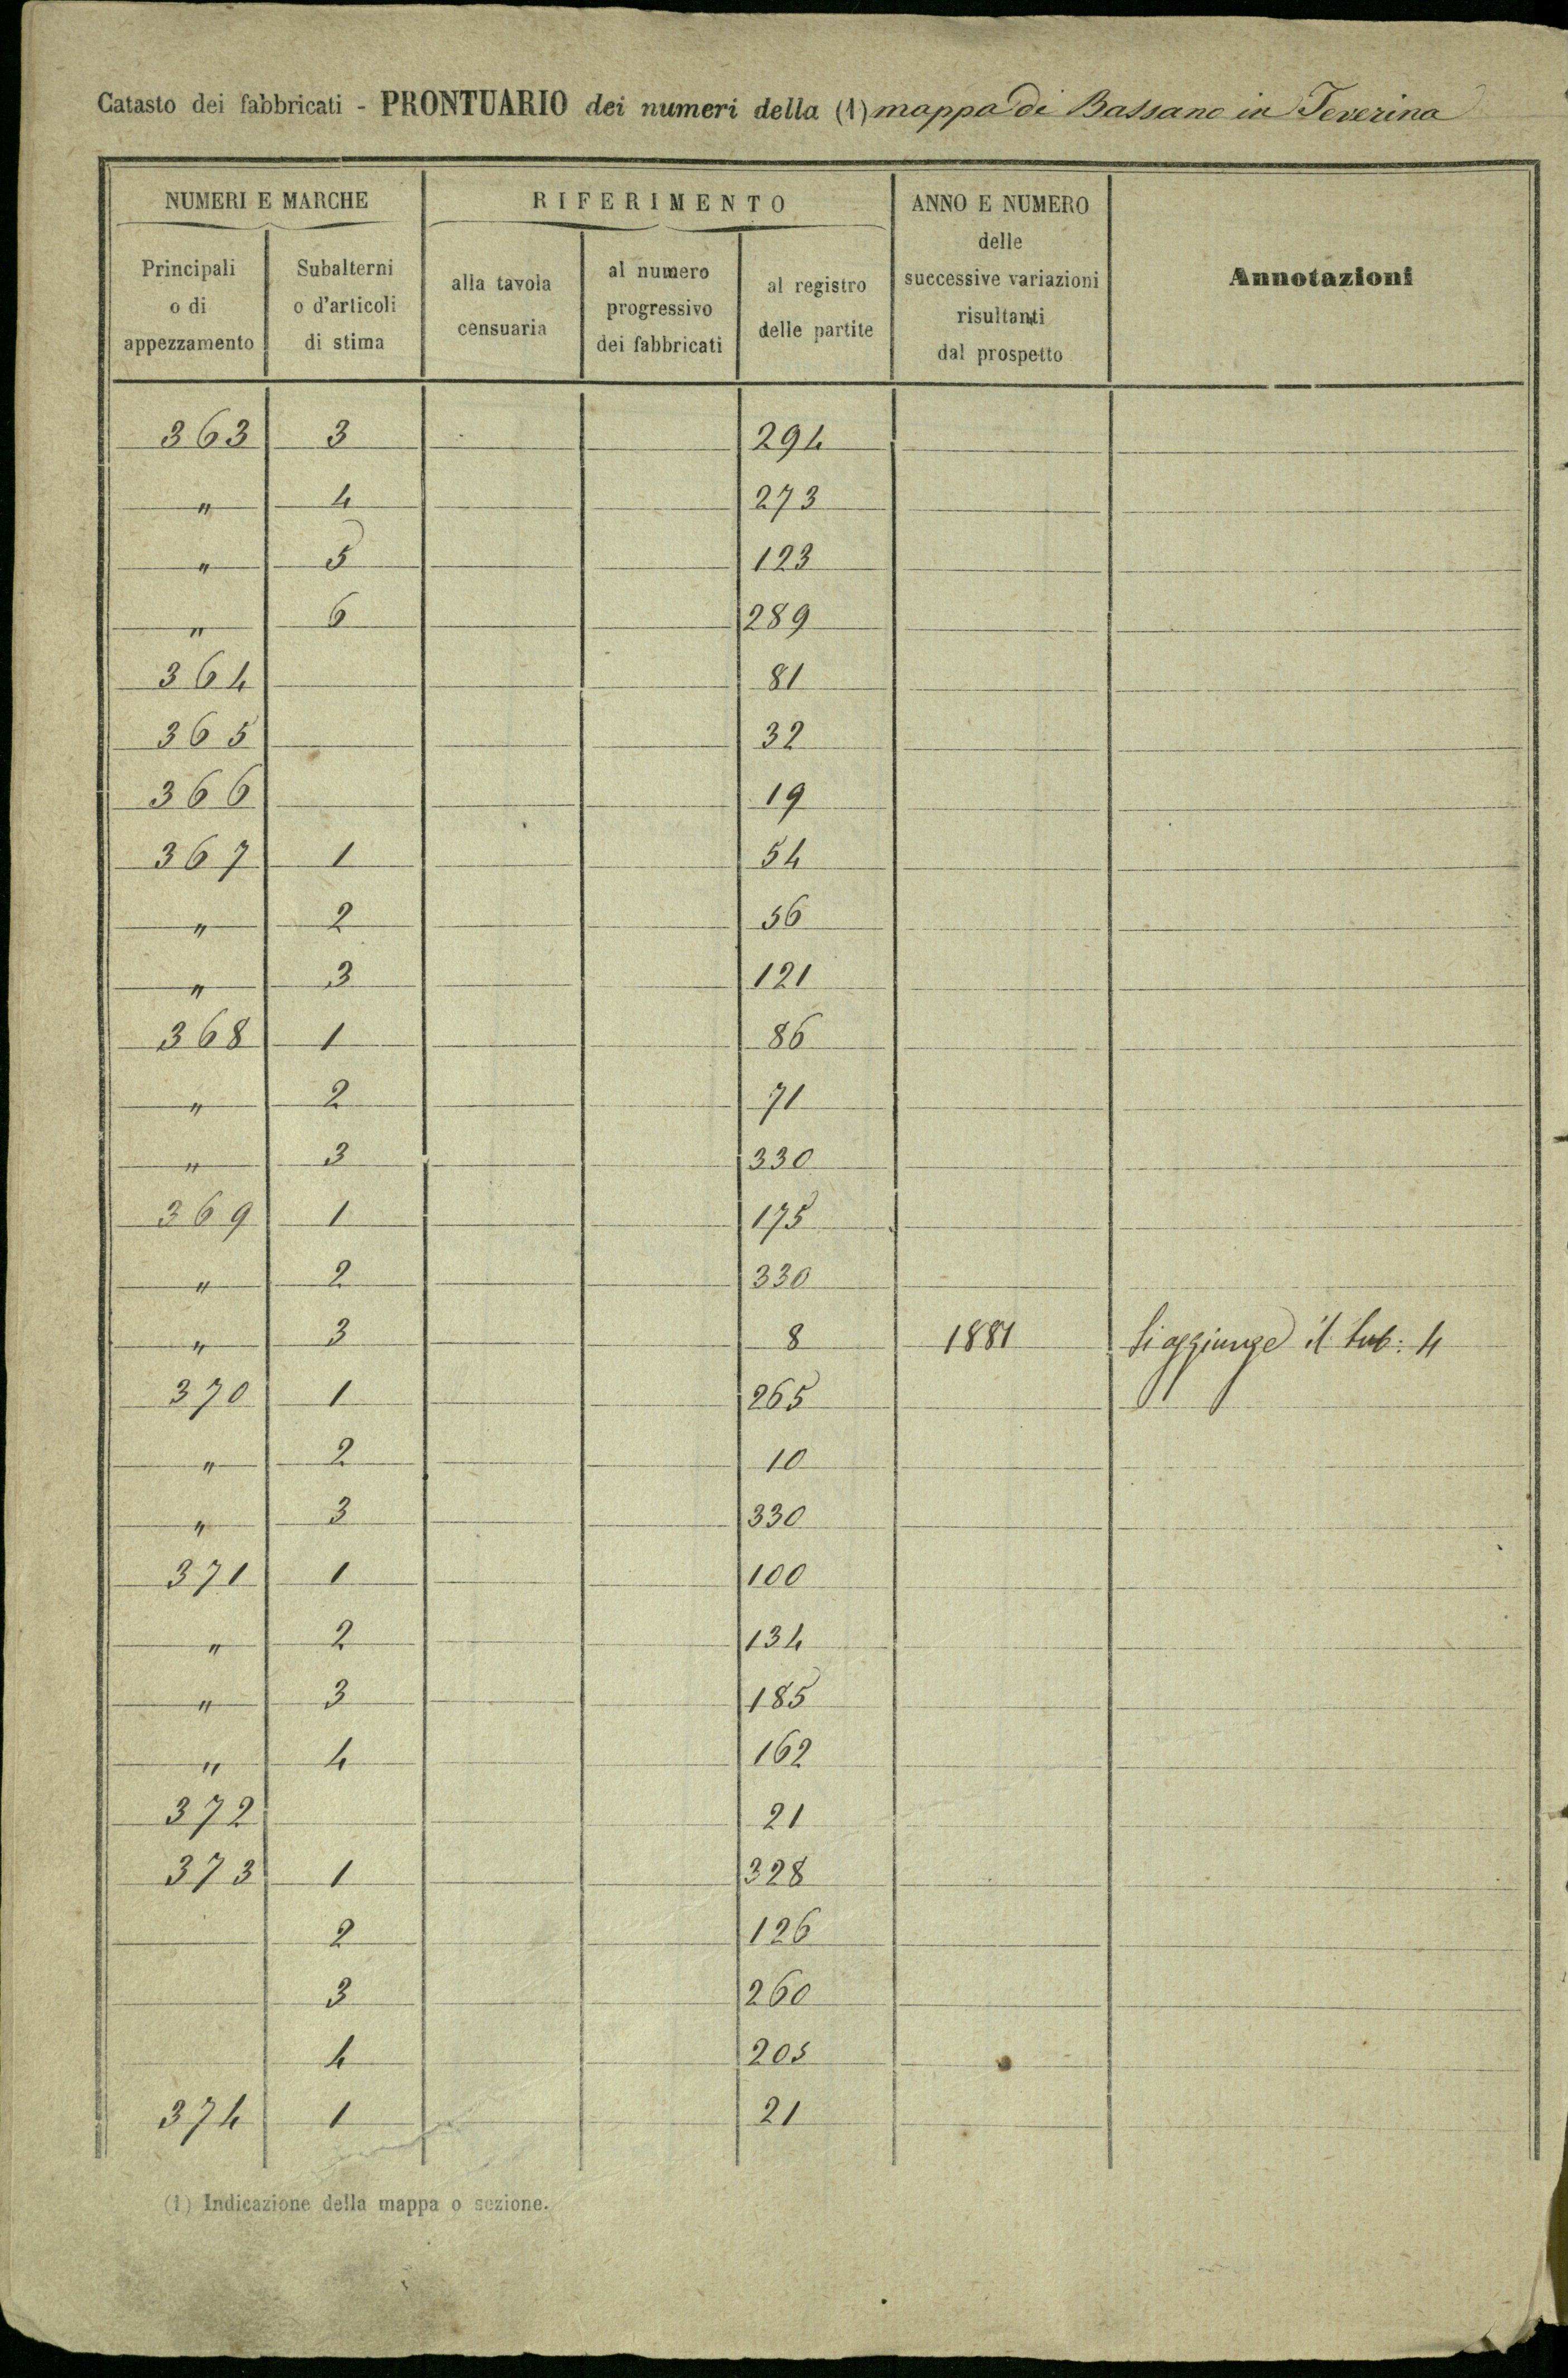 Catasto dei fabbricati - PRONTUARIO dei numeri della (1) mappa di Bassano in Teverina
NUMERI E MARCHE
RIFERIMENTO
ANNO E NUMERO
delle
successive variazioni
risultanti
dal prospetto
Annotazioni
Principali
o di
appezzamento
Subalterni
o d'articoli
di stima
alla tavola
censuaria
al numero
progressivo
dei fabbricati
al registro
delle partite
363 3 294
" 4 273
" 5 123
" 6 289
364 81
365 32
366 19
367 1 54
" 2 56
" 3 121
368 1 86
" 2 71
" 3 330
369 1 175
" 2 330
" 3 8 1881 Si aggiunge il Sub: 4
370 1 265
" 2 10
" 3 330
371 1 100
" 2 134
" 3 185
" 4 162
372 21
373 1 328
2 126
3 260
4 205
374 1 21
(1) Indicazione della mappa o sezione.